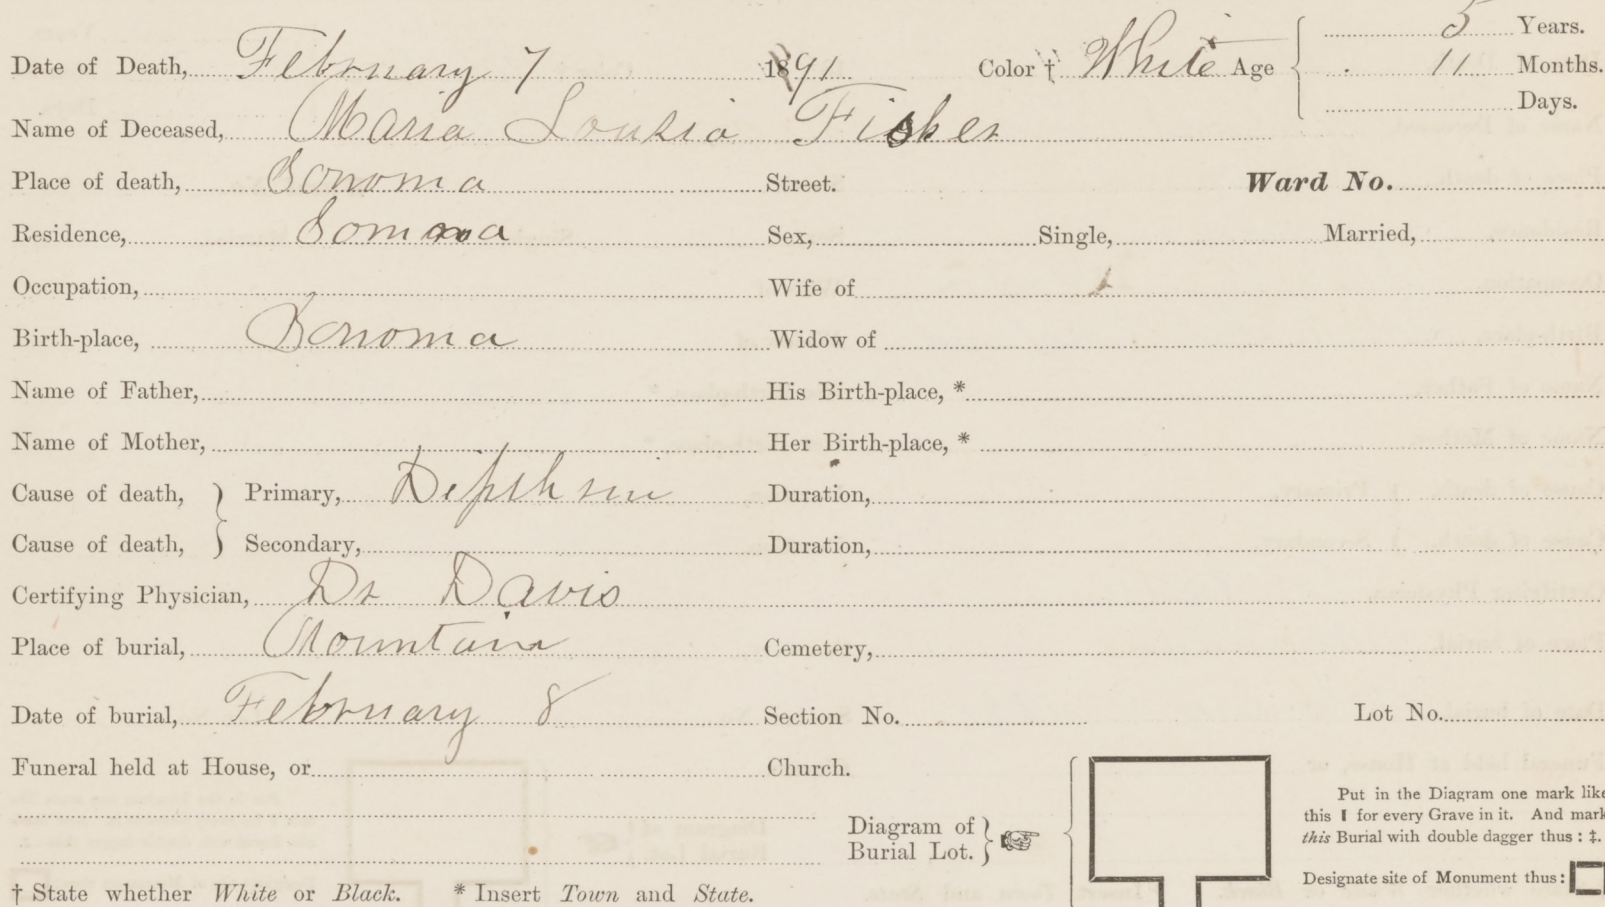 Date of Death, February 7 1891 Color † White Age 5 Years.
11 Months.
Days.
Name of Deceased, Maria Louisia Fisher
Place of death, Sonoma Street. Ward No.
Residence, Sonoma Sex, Single, Married,
Occupation, Wife of
Birth-place, Sonoma Widow of
Name of Father, His Birth-place, *
Name of Mother, Her Birth-place, *
Cause of death, } Primary, Duration,
Cause of death, } Secondary, Duration,
Certifying Physician, Dr Davis
Place of burial, Mountain Cemetery,
Date of burial, February 8 Section No. Lot No.
Funeral held at House, or Church.
Diagram of
Burial Lot.
Put in the Diagram one mark like
this I for every Grave in it. And mark
this Burial with double dagger thus : ‡.
Designate site of Monument thus :
† State whether White or Black. * Insert Town and State.